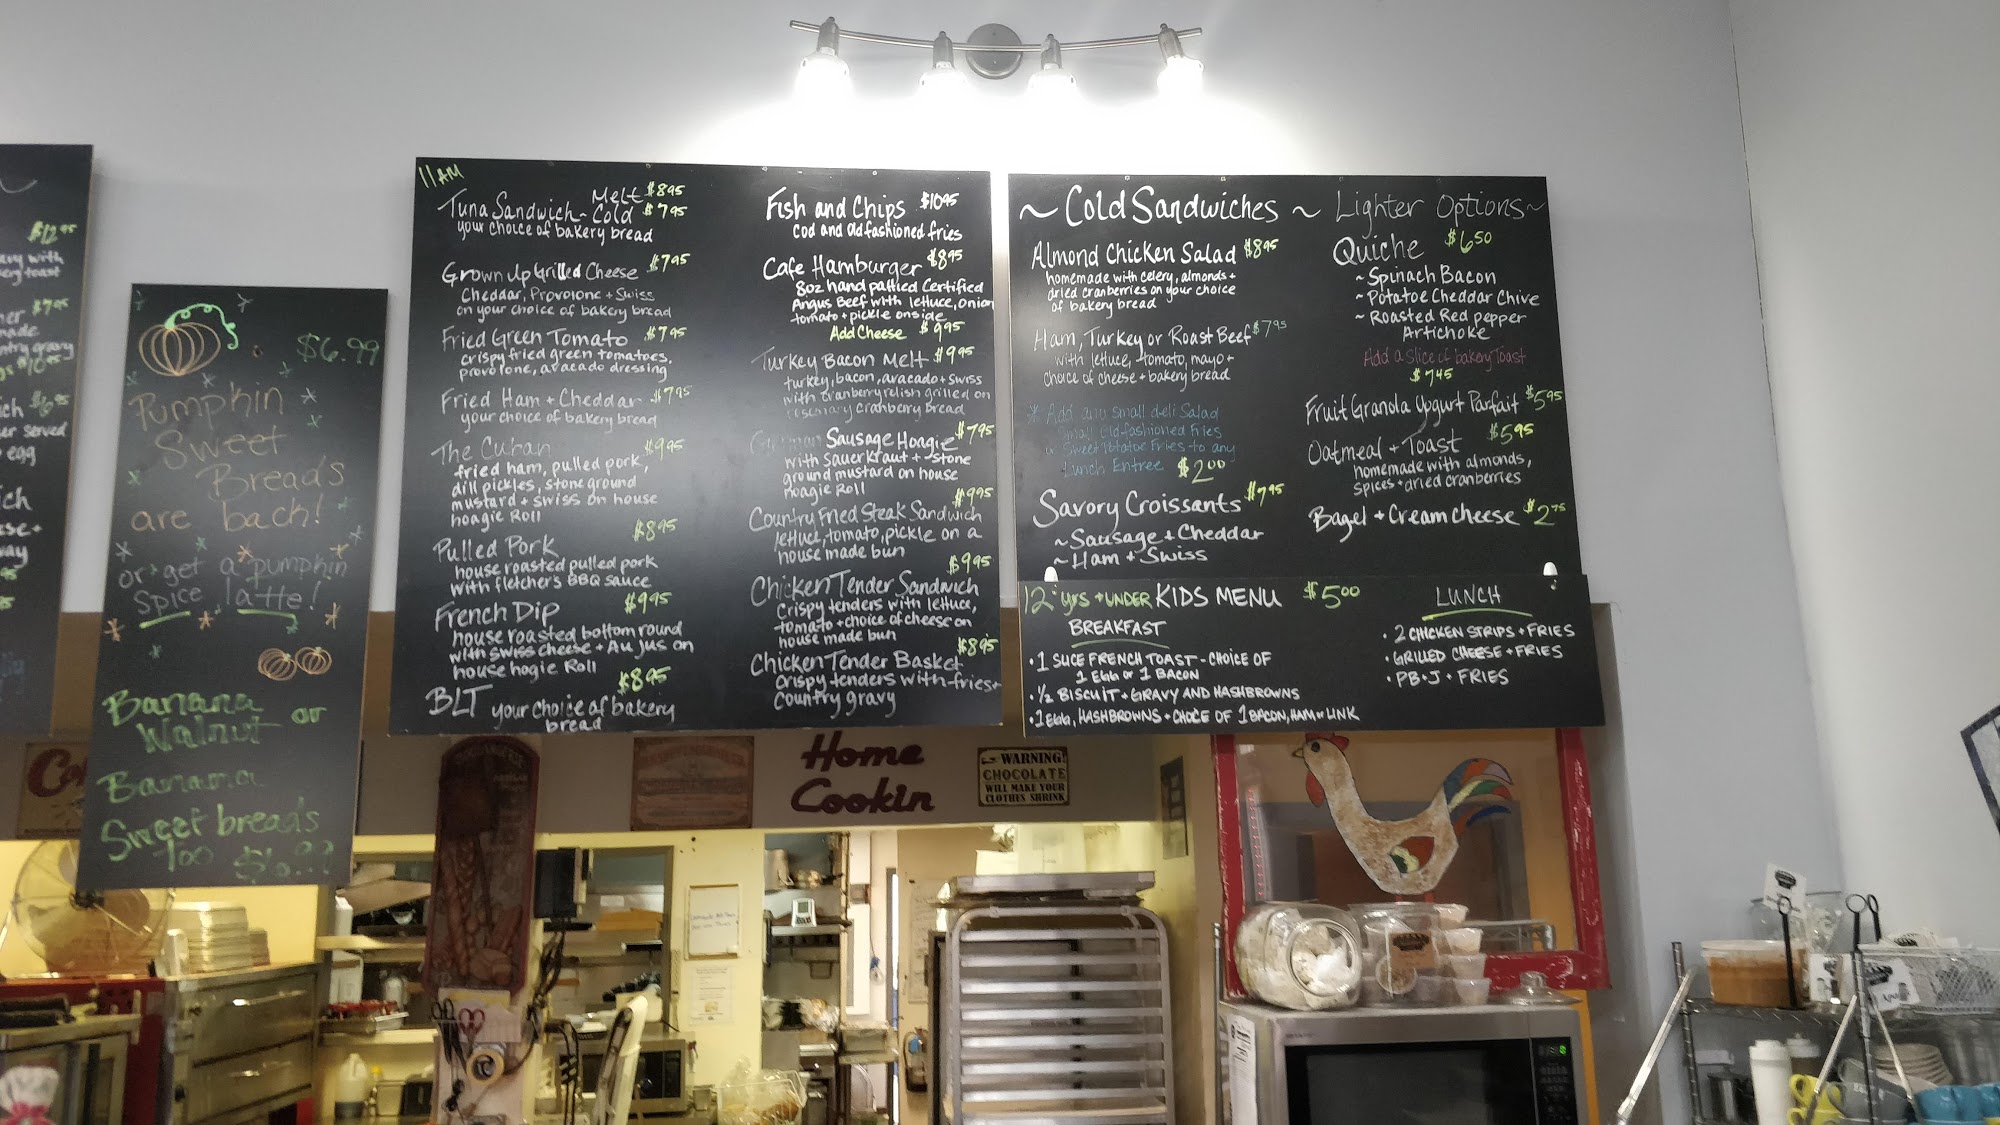 $12.95
$7.95
made
ntry gravy
$10.95
$6.95
er served
egg
Pumpkin $6.99
Sweet
Breads
are back!
or get a pumpkin
spice latte!
Banana
Walnut or
Banana
Sweet breads
too $6.99
11AM
Melt $8.95
Tuna Sandwich - Cold $7.95
your choice of bakery bread
Grown Up Grilled Cheese $7.95
Cheddar, Provolone + Swiss
on your choice of bakery bread
Fried Green Tomato $7.95
crispy fried green tomatoes,
provolone, avacado dressing
Fried Ham + Cheddar $7.95
your choice of bakery bread
The Cuban $9.95
fried ham, pulled pork,
dill pickles, stone ground
mustard + swiss on house
hoagie Roll
Pulled Pork $8.95
house roasted pulled pork
with fletcher's BBQ sauce
French Dip $9.95
house roasted bottom round
with swiss cheese + Au jus on
house hogie Roll
BLT your choice of bakery $8.95
bread
Fish and Chips $10.95
Cod and old fashioned fries
Cafe Hamburger $8.95
8oz hand pattied Certified
Angus Beef with lettuce, onion
tomato + pickle on side
Add Cheese $9.95
Turkey Bacon Melt $9.95
turkey, bacon, avacado + swiss
with cranberry relish grilled on
rosemary cranberry bread
German Sausage Hoagie $7.95
with sauerkraut + stone
ground mustard on house
hoagie Roll
$9.95
Country Fried Steak Sandwich
lettuce, tomato, pickle on a
house made bun
$9.95
Chicken Tender Sandwich
Crispy tenders with lettuce,
tomato + choice of cheese on
house made bun
$8.95
Chicken Tender Basket
crispy tenders with fries +
country gravy
~ Cold Sandwiches ~
Almond Chicken Salad $8.95
homemade with celery, almonds +
dried cranberries on your choice
of bakery bread
Ham, Turkey or Roast Beef $7.95
with lettuce, tomato, mayo +
choice of cheese + bakery bread
* Add any small deli Salad
Small Old fashioned Fries
or Sweet Potatoe Fries to any
Lunch Entree $2.00
Savory Croissants $7.95
~ Sausage + Cheddar
~ Ham + Swiss
Lighter Options ~
Quiche $6.50
~ Spinach Bacon
~ Potatoe Cheddar Chive
~ Roasted Red pepper
Artichoke
Add a slice of bakery Toast
$7.45
Fruit Granola Yogurt Parfait $5.95
Oatmeal + Toast $5.95
homemade with almonds,
spices + dried cranberries
Bagel + Cream Cheese $2.75
12 yrs + UNDER KIDS MENU $5.00
BREAKFAST
• 1 SLICE FRENCH TOAST - CHOICE OF
1 EGG OR 1 BACON
• 1/2 BISCUIT + GRAVY AND HASHBROWNS
• 1 EGG, HASHBROWNS + CHOICE OF 1 BACON, HAM or LINK
LUNCH
• 2 CHICKEN STRIPS + FRIES
• GRILLED CHEESE + FRIES
• PB + J + FRIES
Home
Cookin
WARNING!
CHOCOLATE
WILL MAKE YOUR
CLOTHES SHRINK